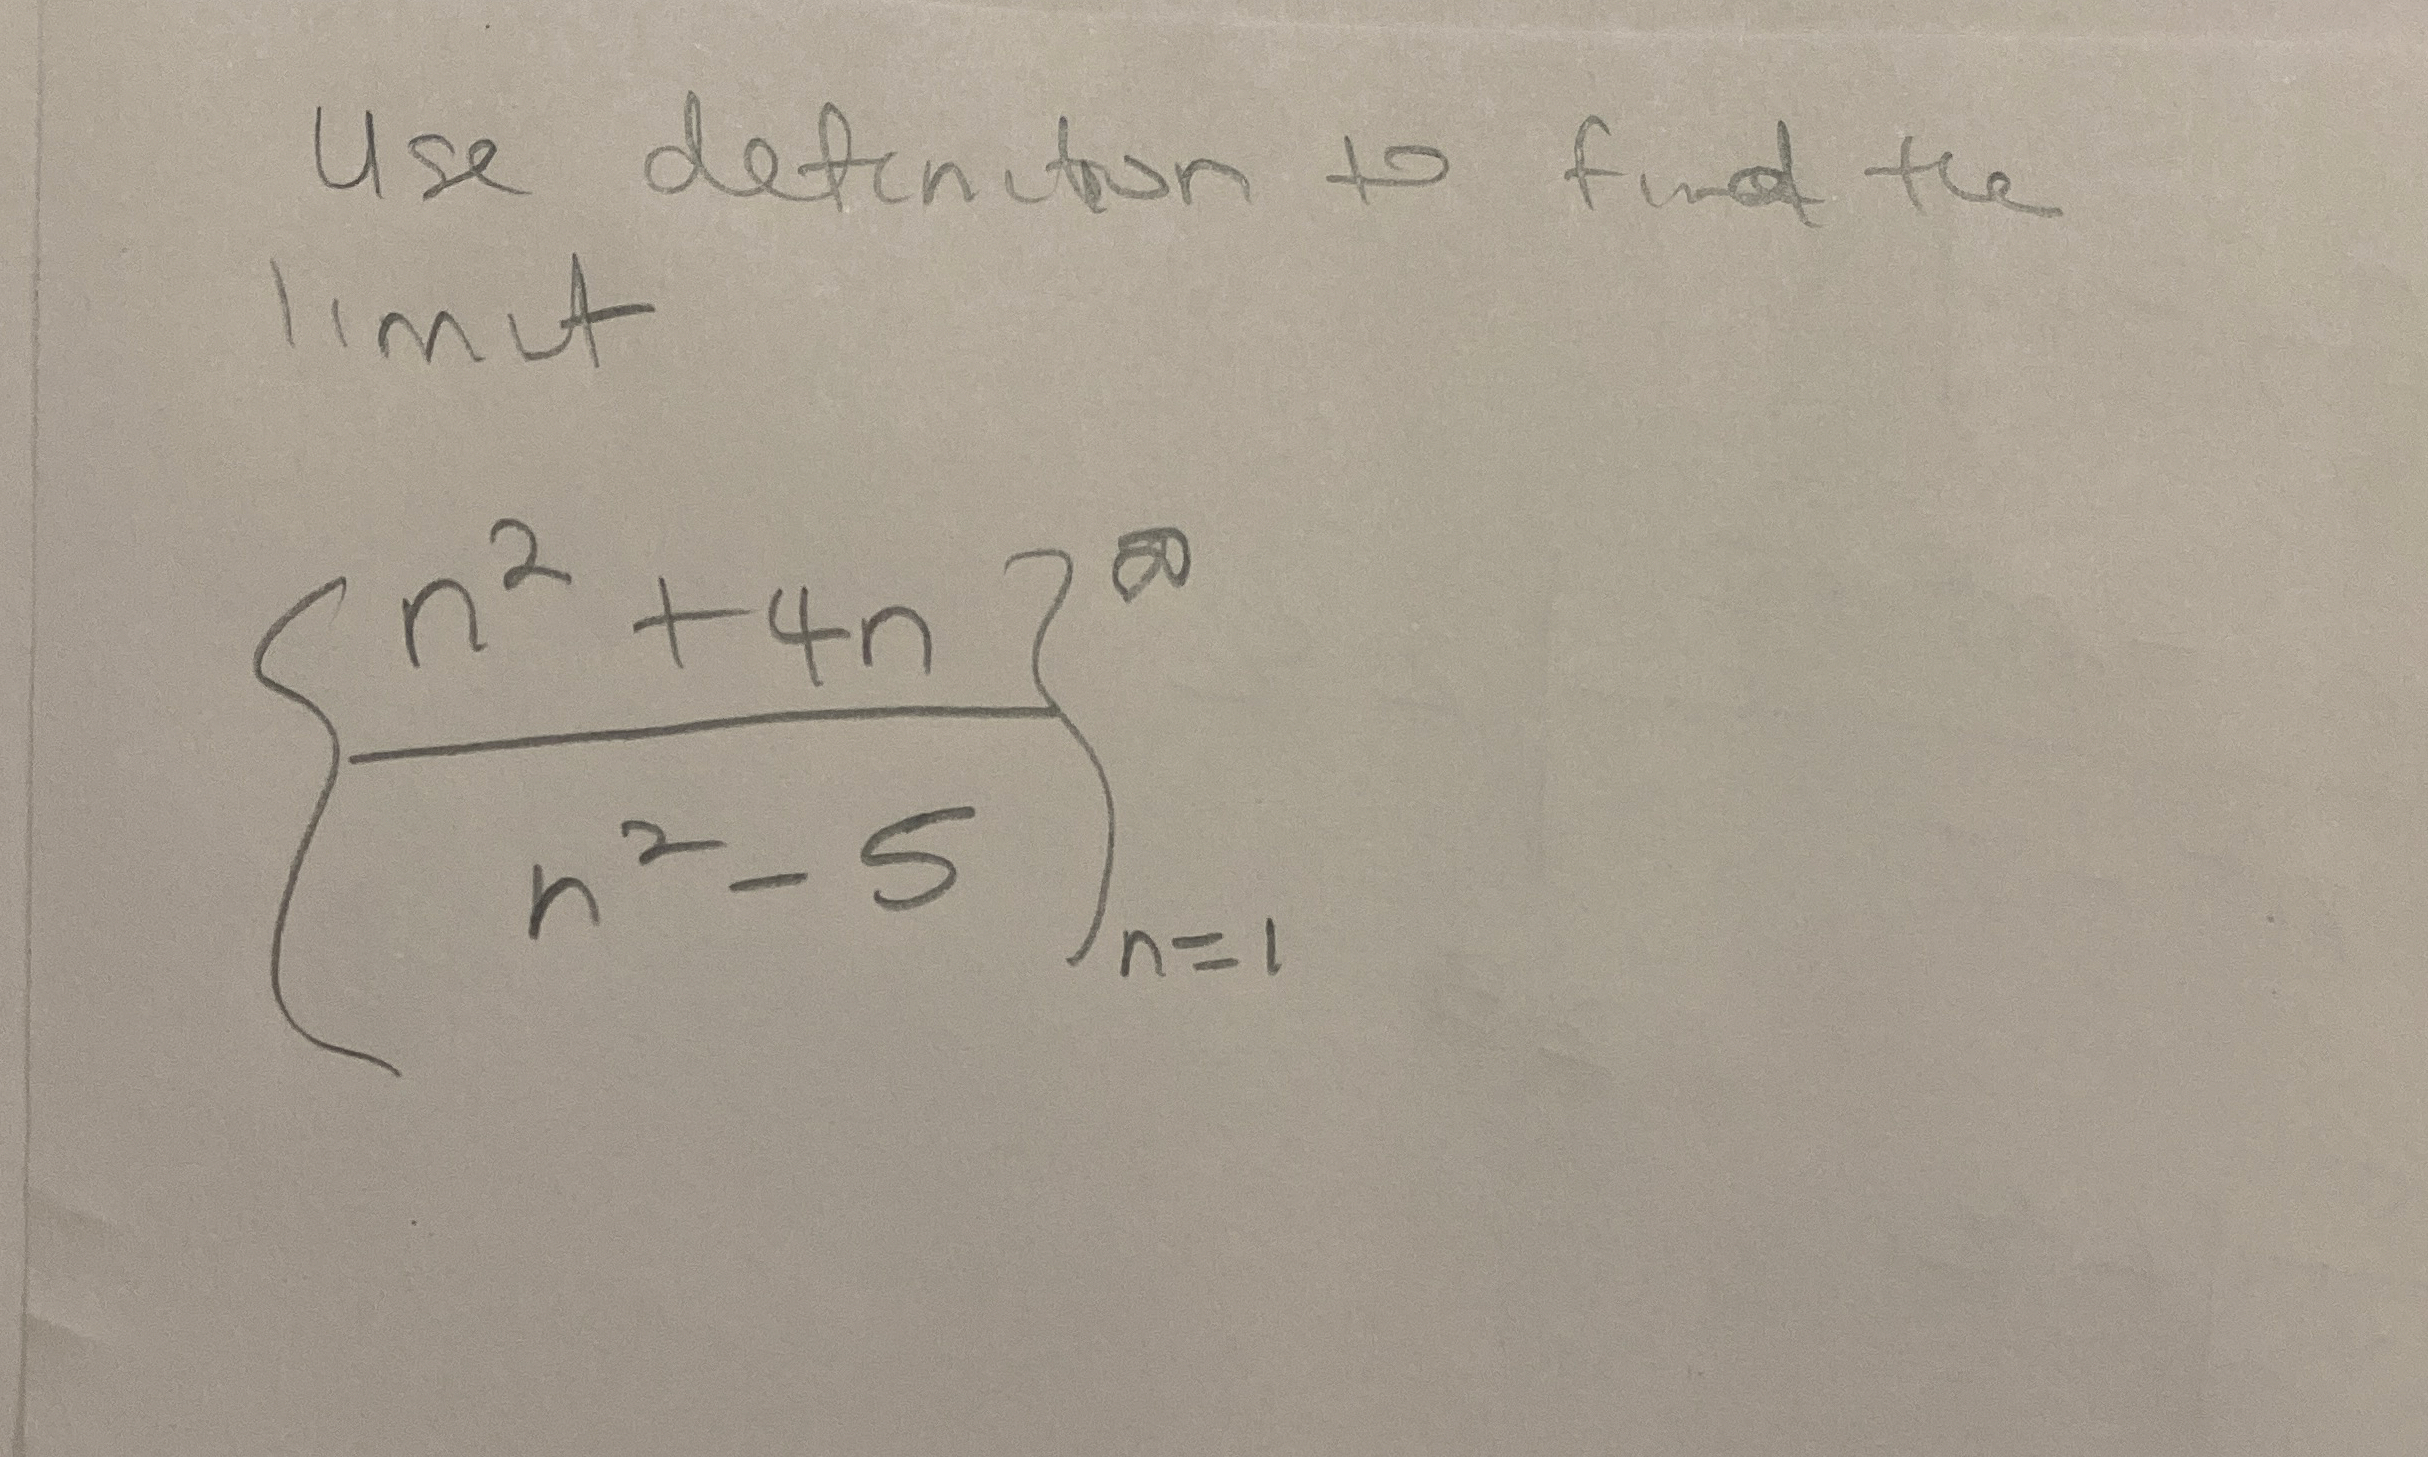 Use definition to find the
limit
{ n² + 4n }^∞
n² - 5
n=1